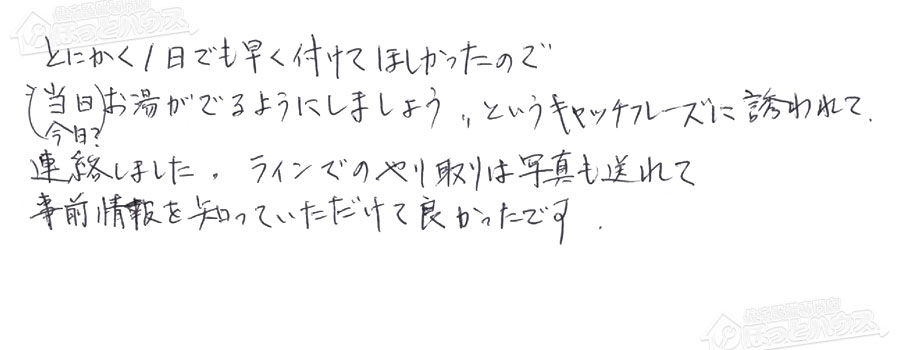 住宅設備専門店
ほっとハウス
とにかく1日でも早く付けてほしかったので
"(当日)お湯がでるようにしましょう"というキャッチフレーズに誘われて、
今日?
連絡しました。ラインでのやり取りは写真も送れて
事前情報を知っていただけて良かったです.
ほっとハウス